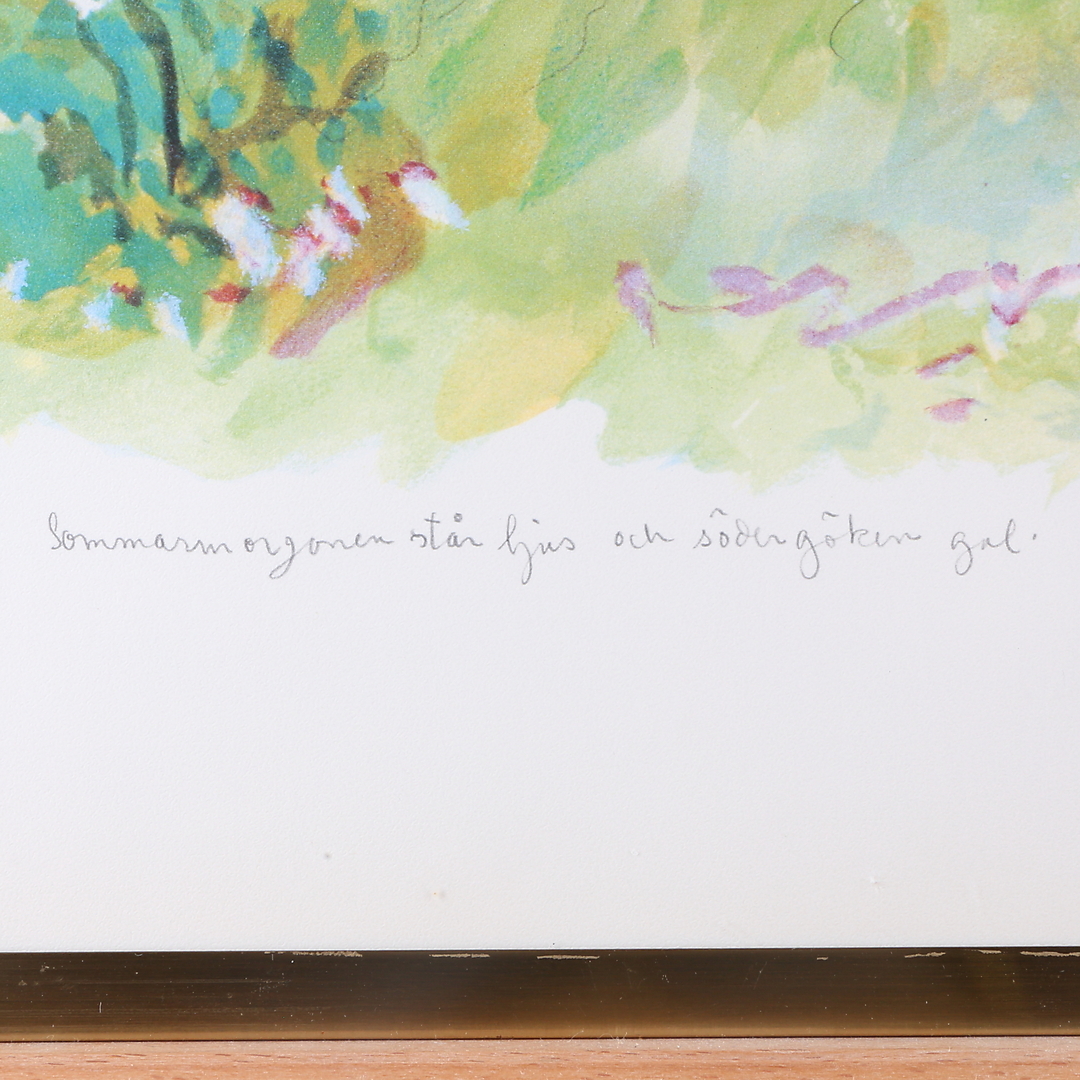 Sommarmorgonen står ljus och södergöken gal.